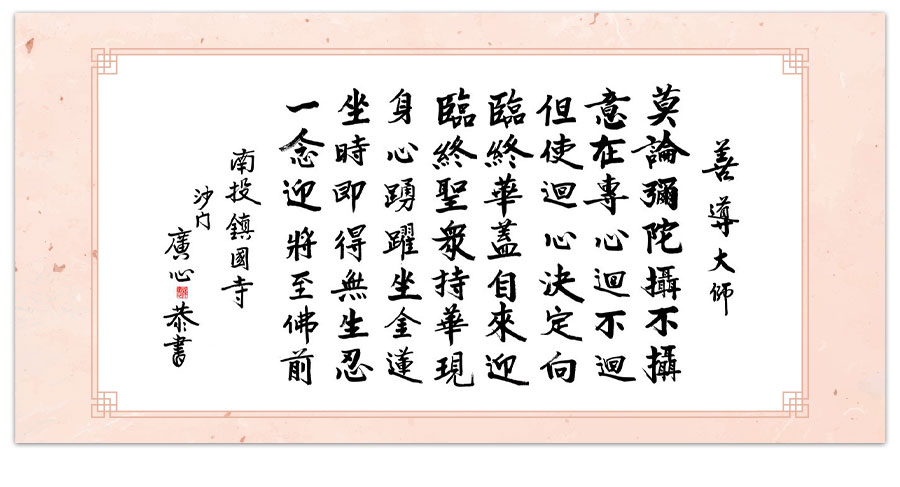 善導大師
莫論彌陀攝不攝
意在專心迴不迴
但使迴心決定向
臨終華蓋自來迎
臨終聖衆持華現
身心踴躍坐金蓮
坐時即得無生忍
一念迎將至佛前
南投鎮國寺
沙门
廣心
恭書